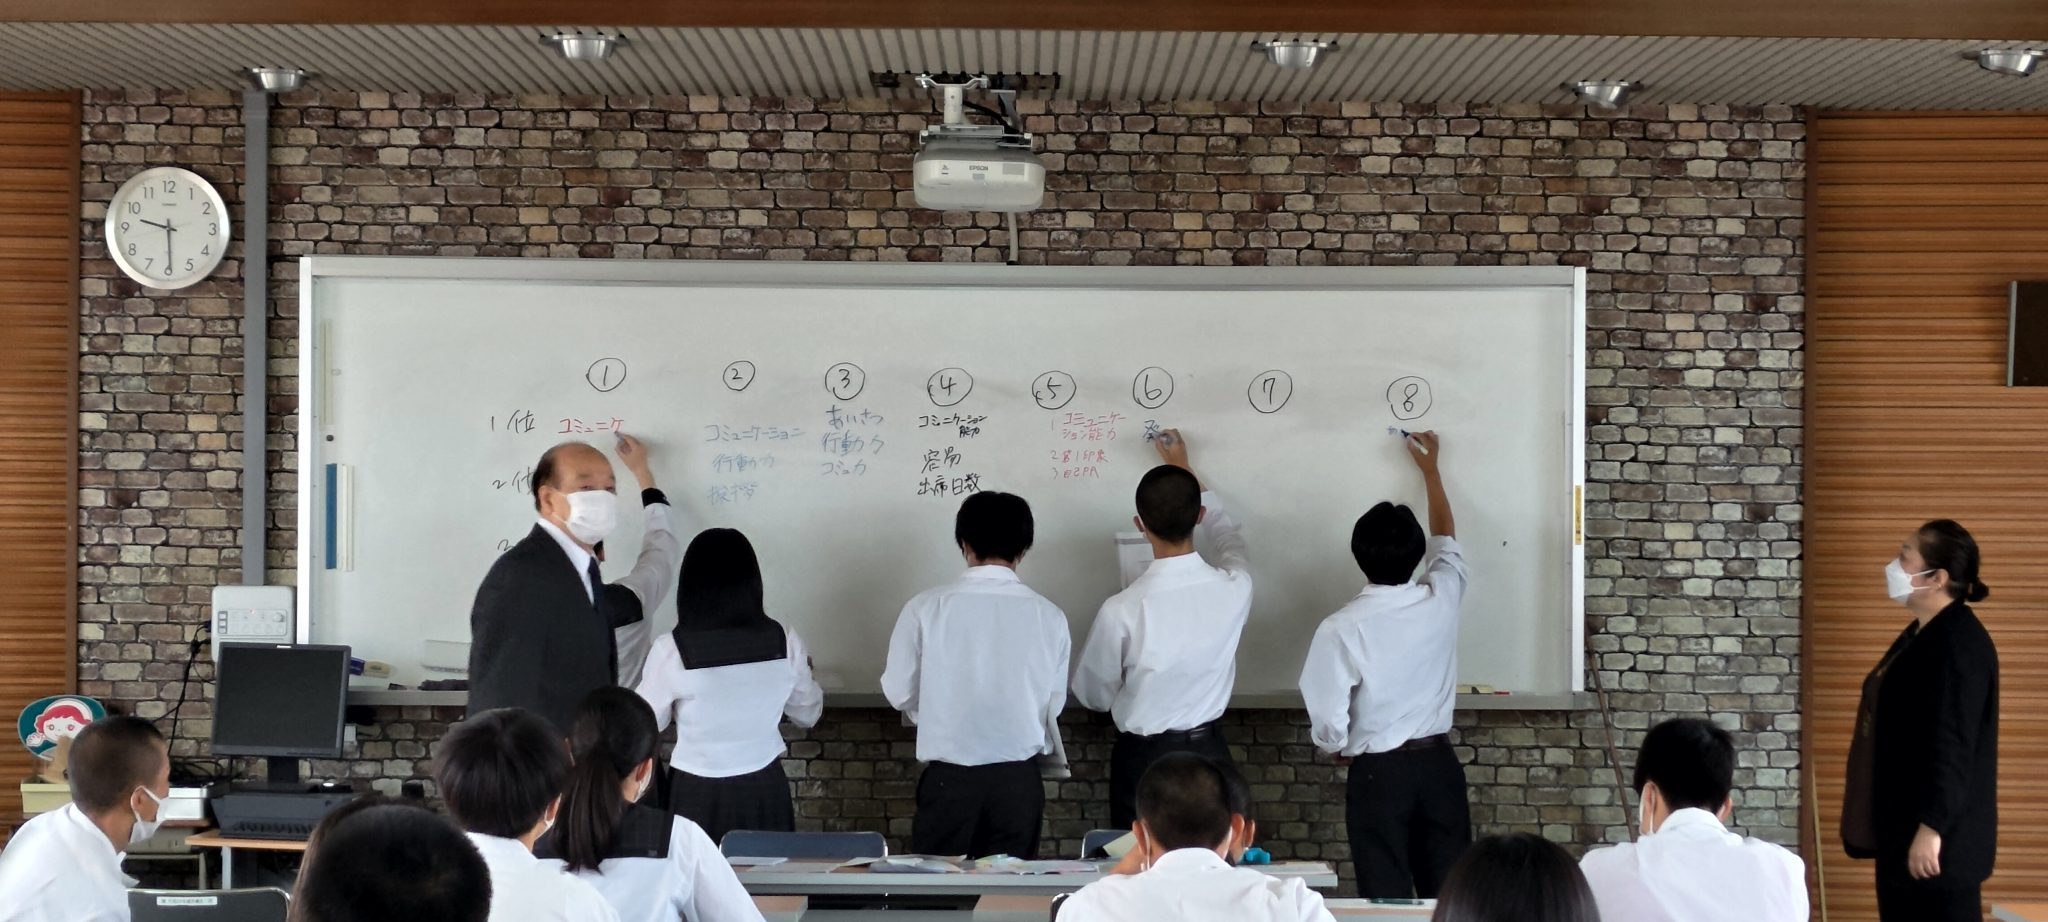 ① ② ③ ④ ⑤ ⑥ ⑦ ⑧
1位
2位
コミュニケ
コミュニケーション
行動力
挨拶
あいさつ
行動力
コミュ力
コミュニケーション
能力
容易
出席日数
1 コミュニケー
ション能力
2 第1印象
3 自己PR
発
あ
EPSON
12
1
2
3
4
5
6
7
8
9
10
11